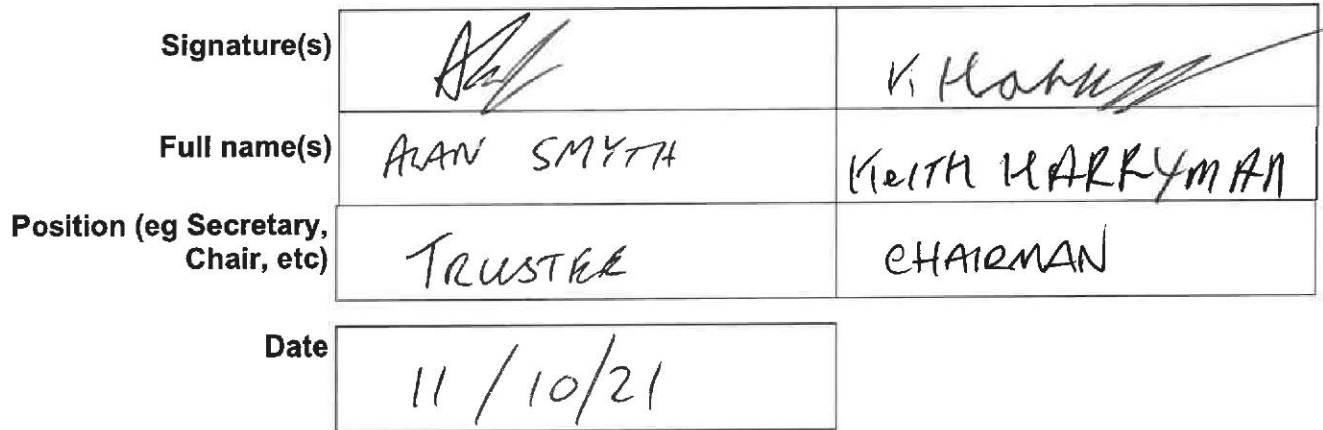 Signature(s)
Full name(s) ALAN SMYTH KEITH HARRYMAN
Position (eg Secretary,
Chair, etc) TRUSTEE CHAIRMAN
Date 11/10/21